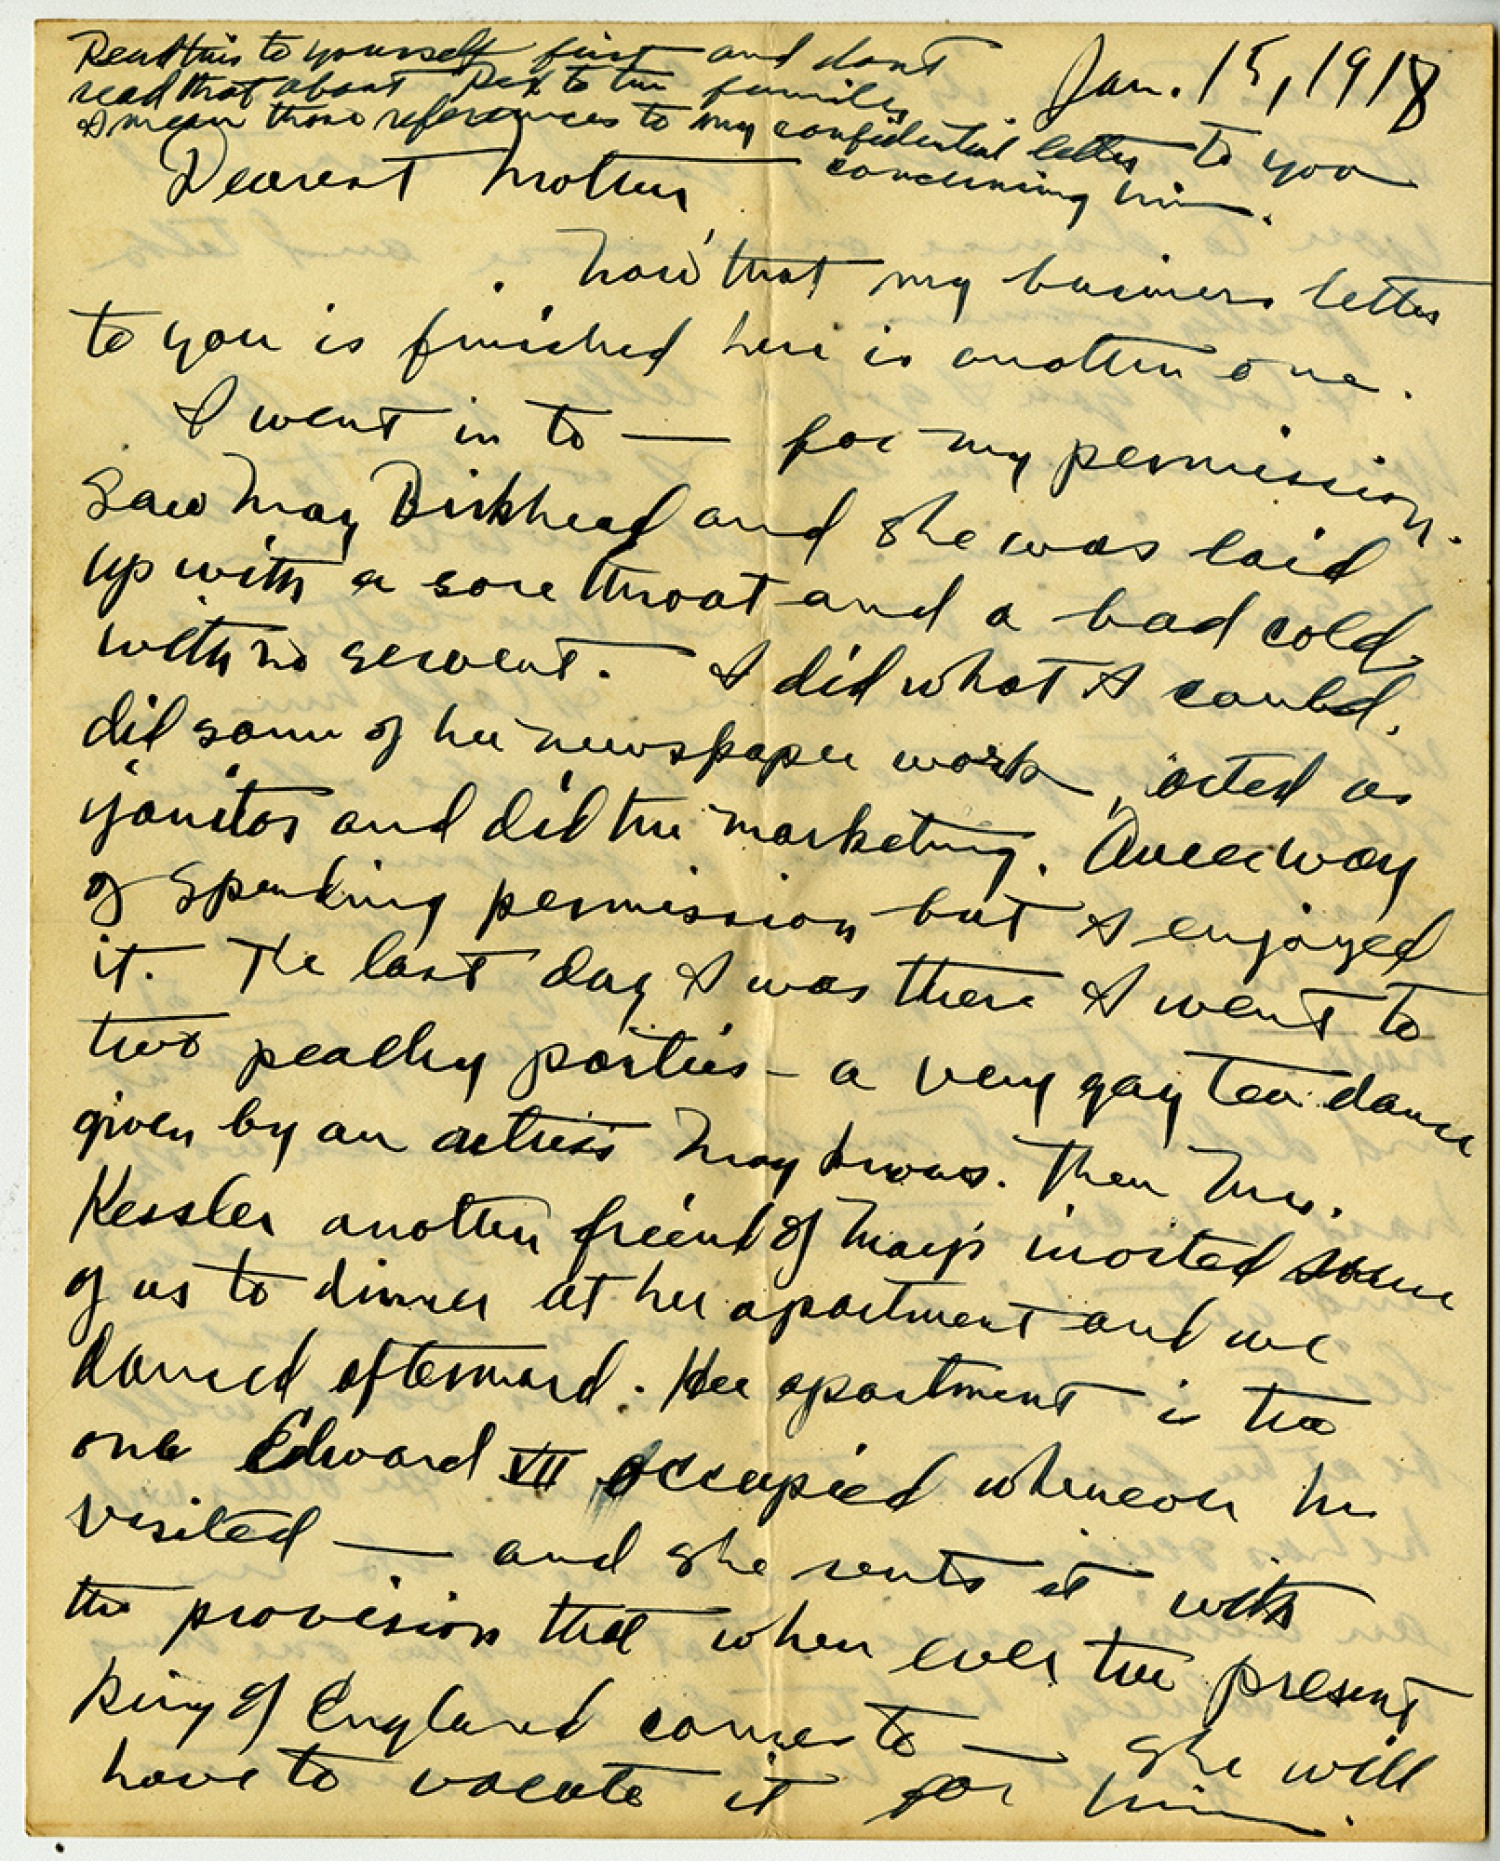 Read this to yourself first and dont
read that about Rex to the family
I mean those references to my confidential letter to you
concerning him.
Jan. 15, 1918
Dearest Mother
Now that my business letter
to you is finished here is another one.
I went in to — for my permission.
Saw May Birkhead and she was laid
up with a sore throat and a bad cold
with no servent. I did what I could,
did some of her newspaper work, acted as
janitor and did the marketing. A queer way
of spending permission but I enjoyed
it. The last day I was there I went to
two peachy parties — a very gay tea dance
given by an actress May knows. Then Mrs.
Kessler another friend of May's invited some
of us to dinner at her apartment and we
danced afterward. Her apartment is the
one Edward VII occupied whenever he
visited — and she rents it with
the provision that when ever the present
King of England comes to — she will
have to vacate it for him.